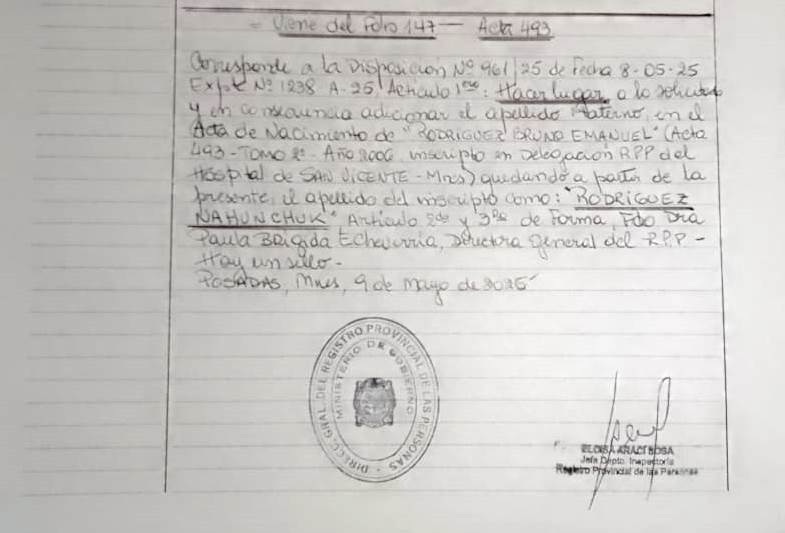 = Viene del Folio 147 — Acta 493
Corresponde a la Disposición Nº 961/25 de Fecha 8-05-25
Expte Nº 1238 A-25, Artículo 1ero: Hacer lugar, a lo solicitado
y en consecuencia adicionar el apellido Materno, en el
Acta de Nacimiento de "RODRIGUEZ BRUNO EMANUEL" (Acta
493-TOMO 2º- Año 2006, inscripto en Delegación RPP del
Hospital de SAN VICENTE-Mnes) quedando a partir de la
presente, el apellido del inscripto como: "RODRIGUEZ
NAHUNCHUK" Artículo 2do y 3ro de Forma, Fdo Dra
Paula BRigida Echeverria, Directora General del RPP-
Hay un sello-
POSADAS, Mnes, 9 de Mayo de 2025-
DIRECC. GRAL. DEL REGISTRO PROVINCIAL DE LAS PERSONAS
MINISTERIO DE GOBIERNO
ELOISA ARACI BOSA
Jefa Dpto. Inspectoría
Registro Provincial de las Personas